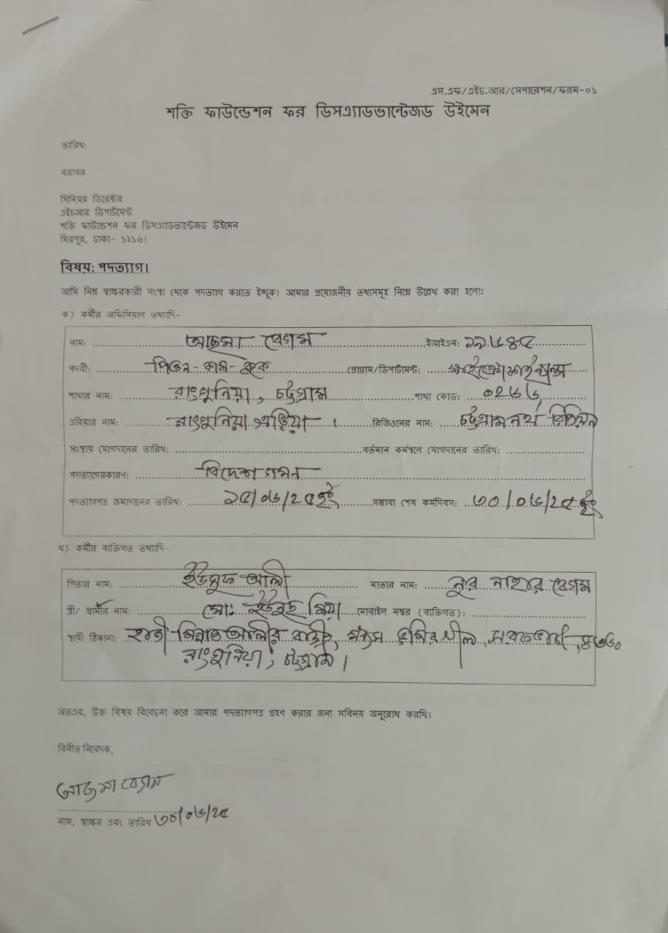 এস.এফ/এইচ.আর/সেপারেশন/ফরম-০১
শক্তি ফাউন্ডেশন ফর ডিসএ্যাডভান্টেজড উইমেন
তারিখ:
বরাবর
সিনিয়র ডিরেক্টর
এইচআর ডিপার্টমেন্ট
শক্তি ফাউন্ডেশন ফর ডিসএ্যাডভান্টেজড উইমেন
মিরপুর, ঢাকা- ১২১৬।
বিষয়: পদত্যাগ।
আমি নিম্ন স্বাক্ষরকারী সংস্থা থেকে পদত্যাগ করতে ইচ্ছুক। আমার প্রয়োজনীয় তথ্যসমূহ নিম্নে উল্লেখ করা হলো:
ক) কর্মীর অফিসিয়াল তথ্যাদি-
নাম: বেগম ইআইএন:
পদবী: পিওন-কাম-কুক প্রোগ্রাম/ডিপার্টমেন্ট:
শাখার নাম: রাংগুনিয়া, চট্টগ্রাম শাখা কোড: ০২৬৬
এরিয়ার নাম: রাংগুনিয়া এরিয়া। রিজিওনের নাম: চট্টগ্রাম নর্থ রিজিয়ন
সংস্থায় যোগদানের তারিখ: বর্তমান কর্মস্থলে যোগদানের তারিখ:
পদত্যাগেরকারন: বিদেশ গমন
পদত্যাগপত্র জমাদানের তারিখ: ১৫/০৬/২৫ইং সম্ভাব্য শেষ কর্মদিবস: ৩০/০৬/২৫ইং
খ) কর্মীর ব্যক্তিগত তথ্যাদি-
পিতার নাম: ইউসুফ আলী মাতার নাম: নুর নাহার বেগম
স্ত্রী/ স্বামীর নাম: মো: মিয়া মোবাইল নম্বর (ব্যক্তিগত):
স্থায়ী ঠিকানা: বাড়ী,
রাংগুনিয়া, চট্টগ্রাম।
অতএব, উক্ত বিষয় বিবেচনা করে আমার পদত্যাগপত্র গ্রহণ করার জন্য সবিনয় অনুরোধ করছি।
বিনীত নিবেদক,
বেগম
নাম, স্বাক্ষর এবং তারিখ ৩০/০৬/২৫